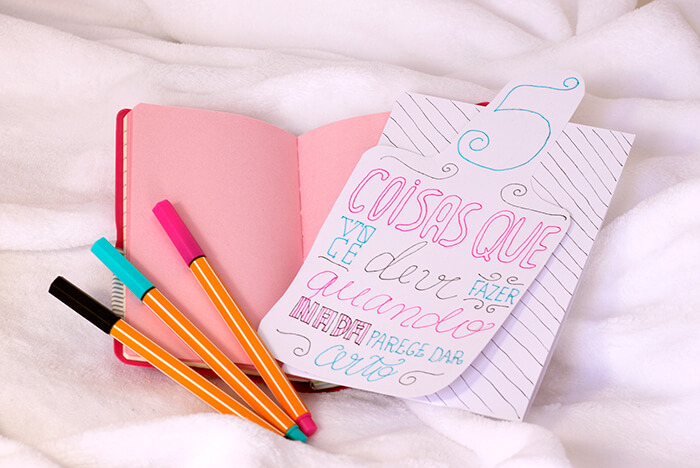 5
COISAS QUE
VOCE deve FAZER
quando
NADA PARECE DAR
certo